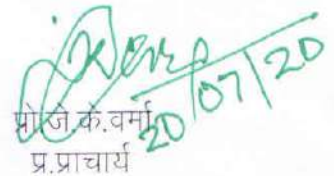 20/07/20
प्रो.जे.के.वर्मा
प्र.प्राचार्य